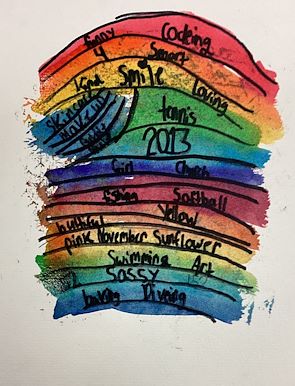 funny Cooking
4 Smart
Kind Smile Loving
Skincare
Makeup
tennis
2013
Girl Church
fishing Softball
healthful Yellow
pink November Sunflower
Swimming Art
SASSY
baking Diving